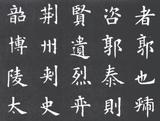 者郭也
咨郭泰則
賢遺烈弈
荊州刺史
韶博陵太